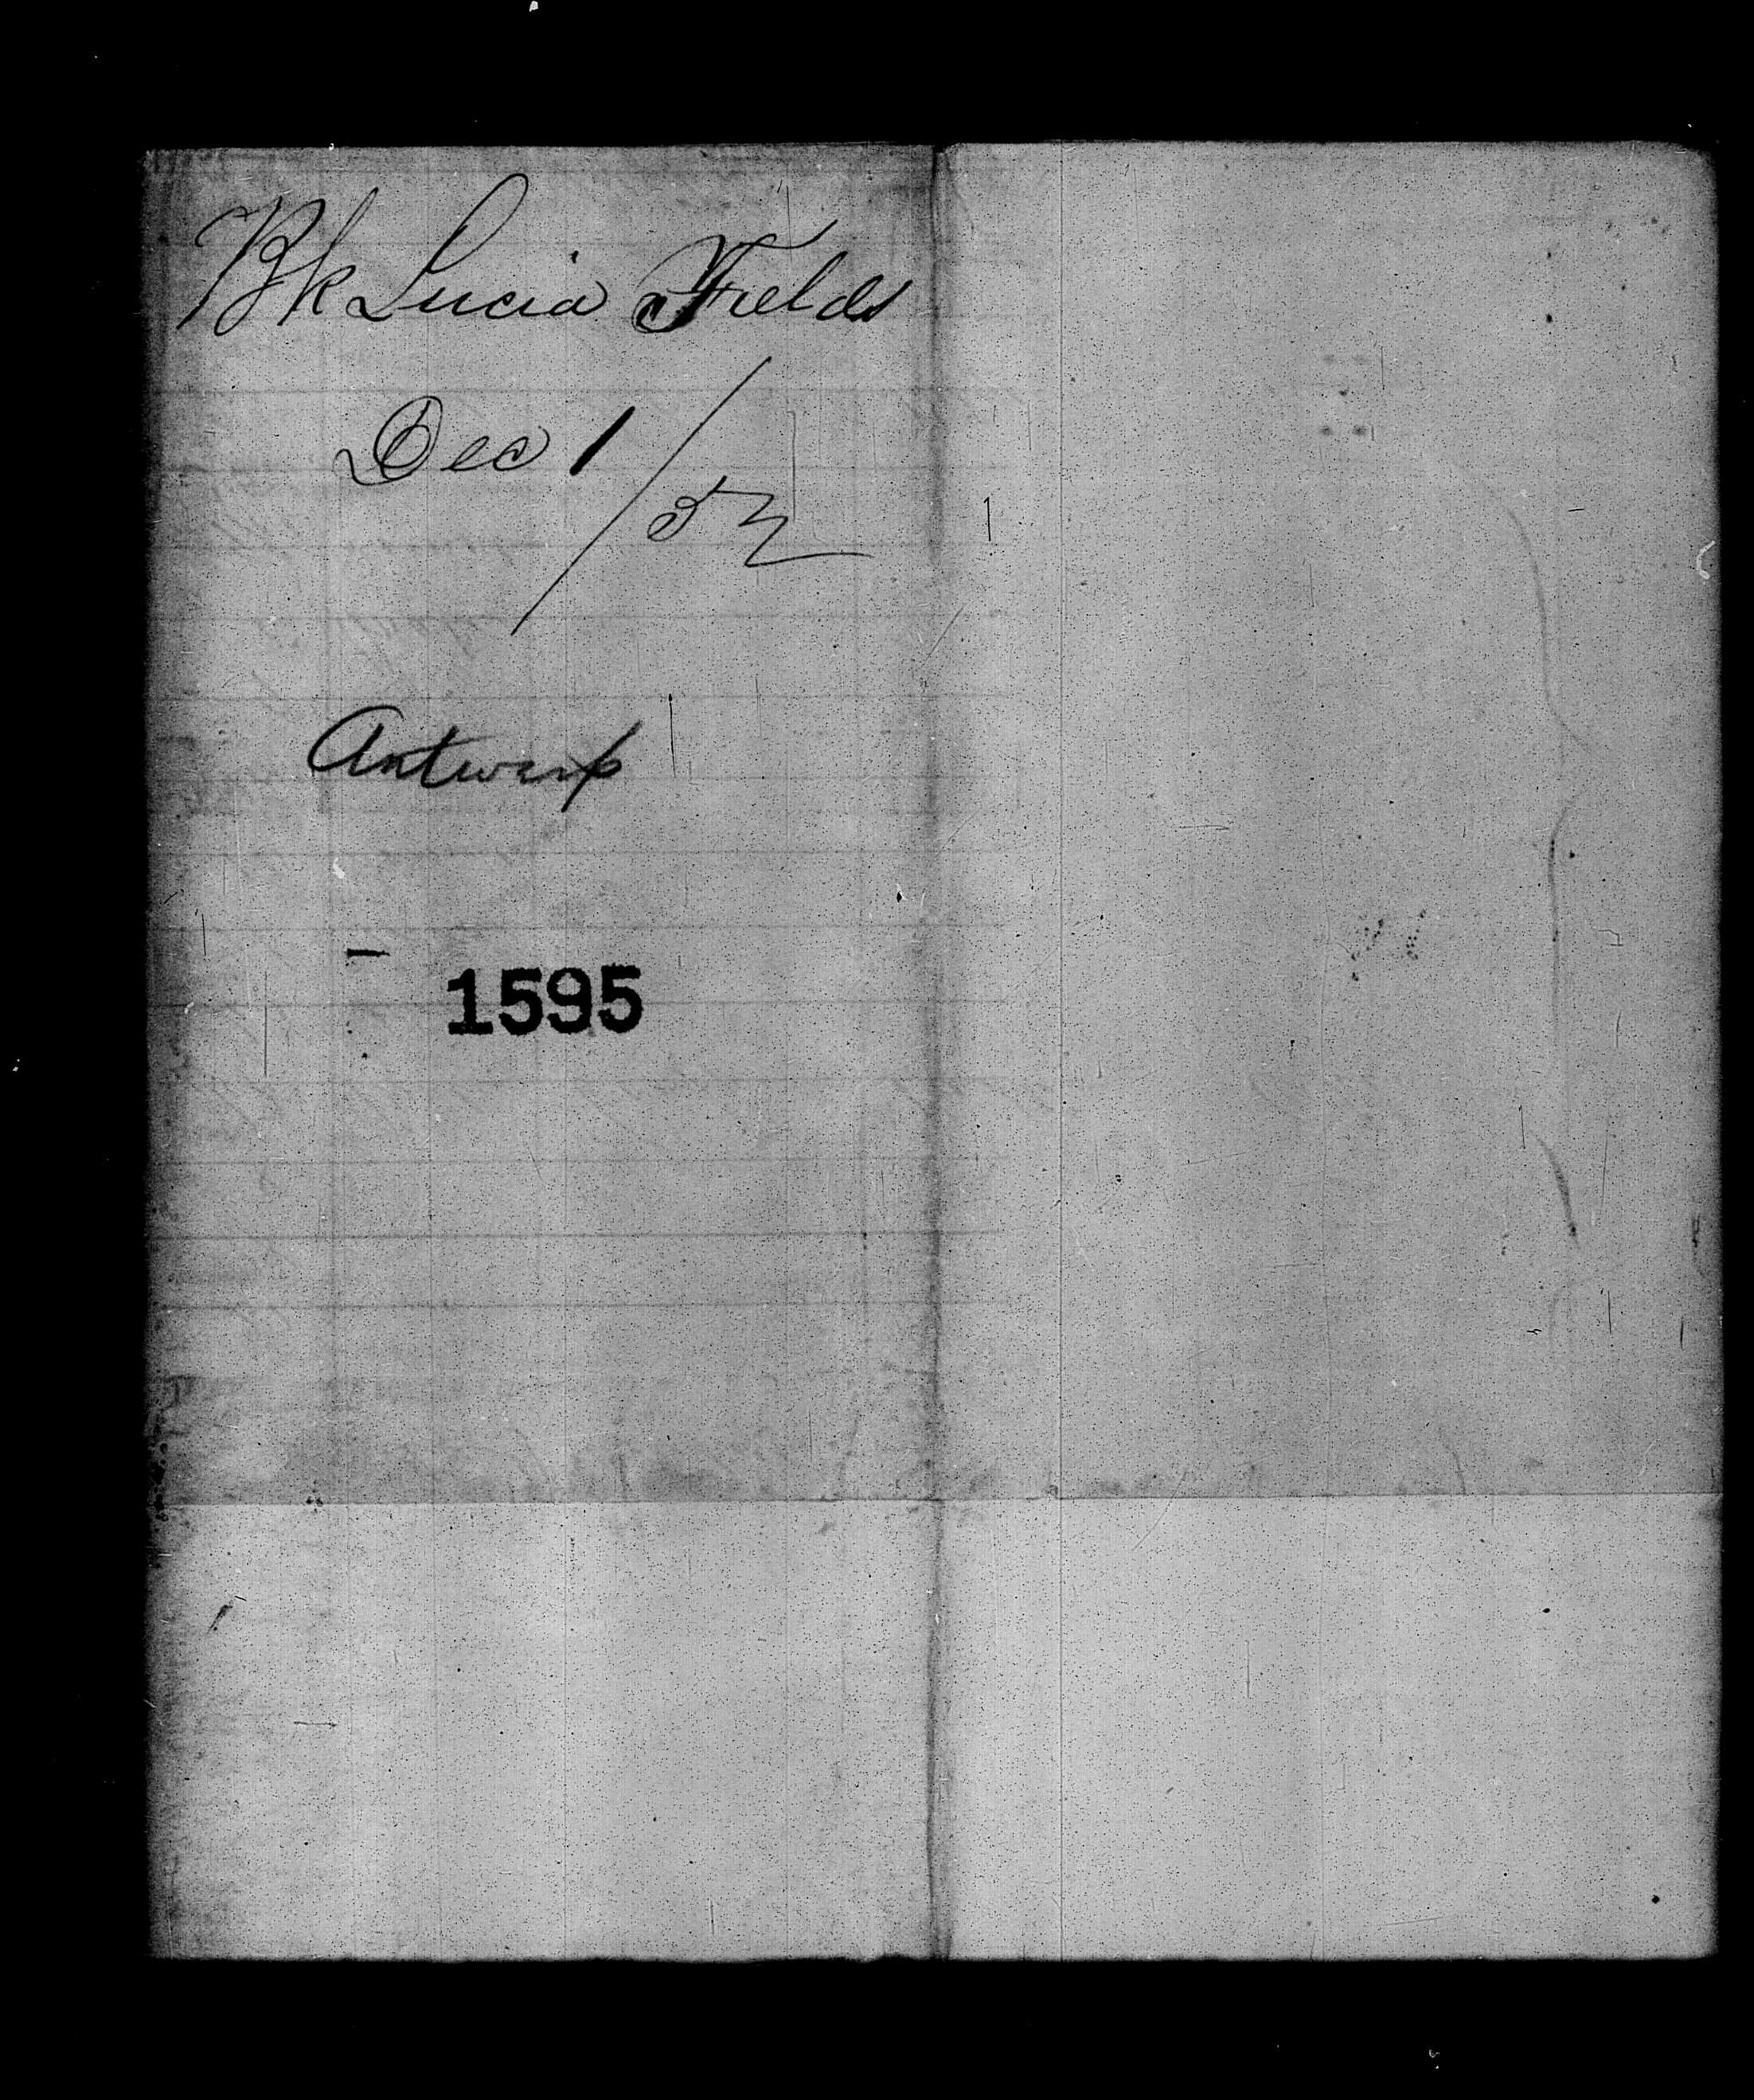 Bk Lucia Fields
Dec 1/52
Antwerp
1595